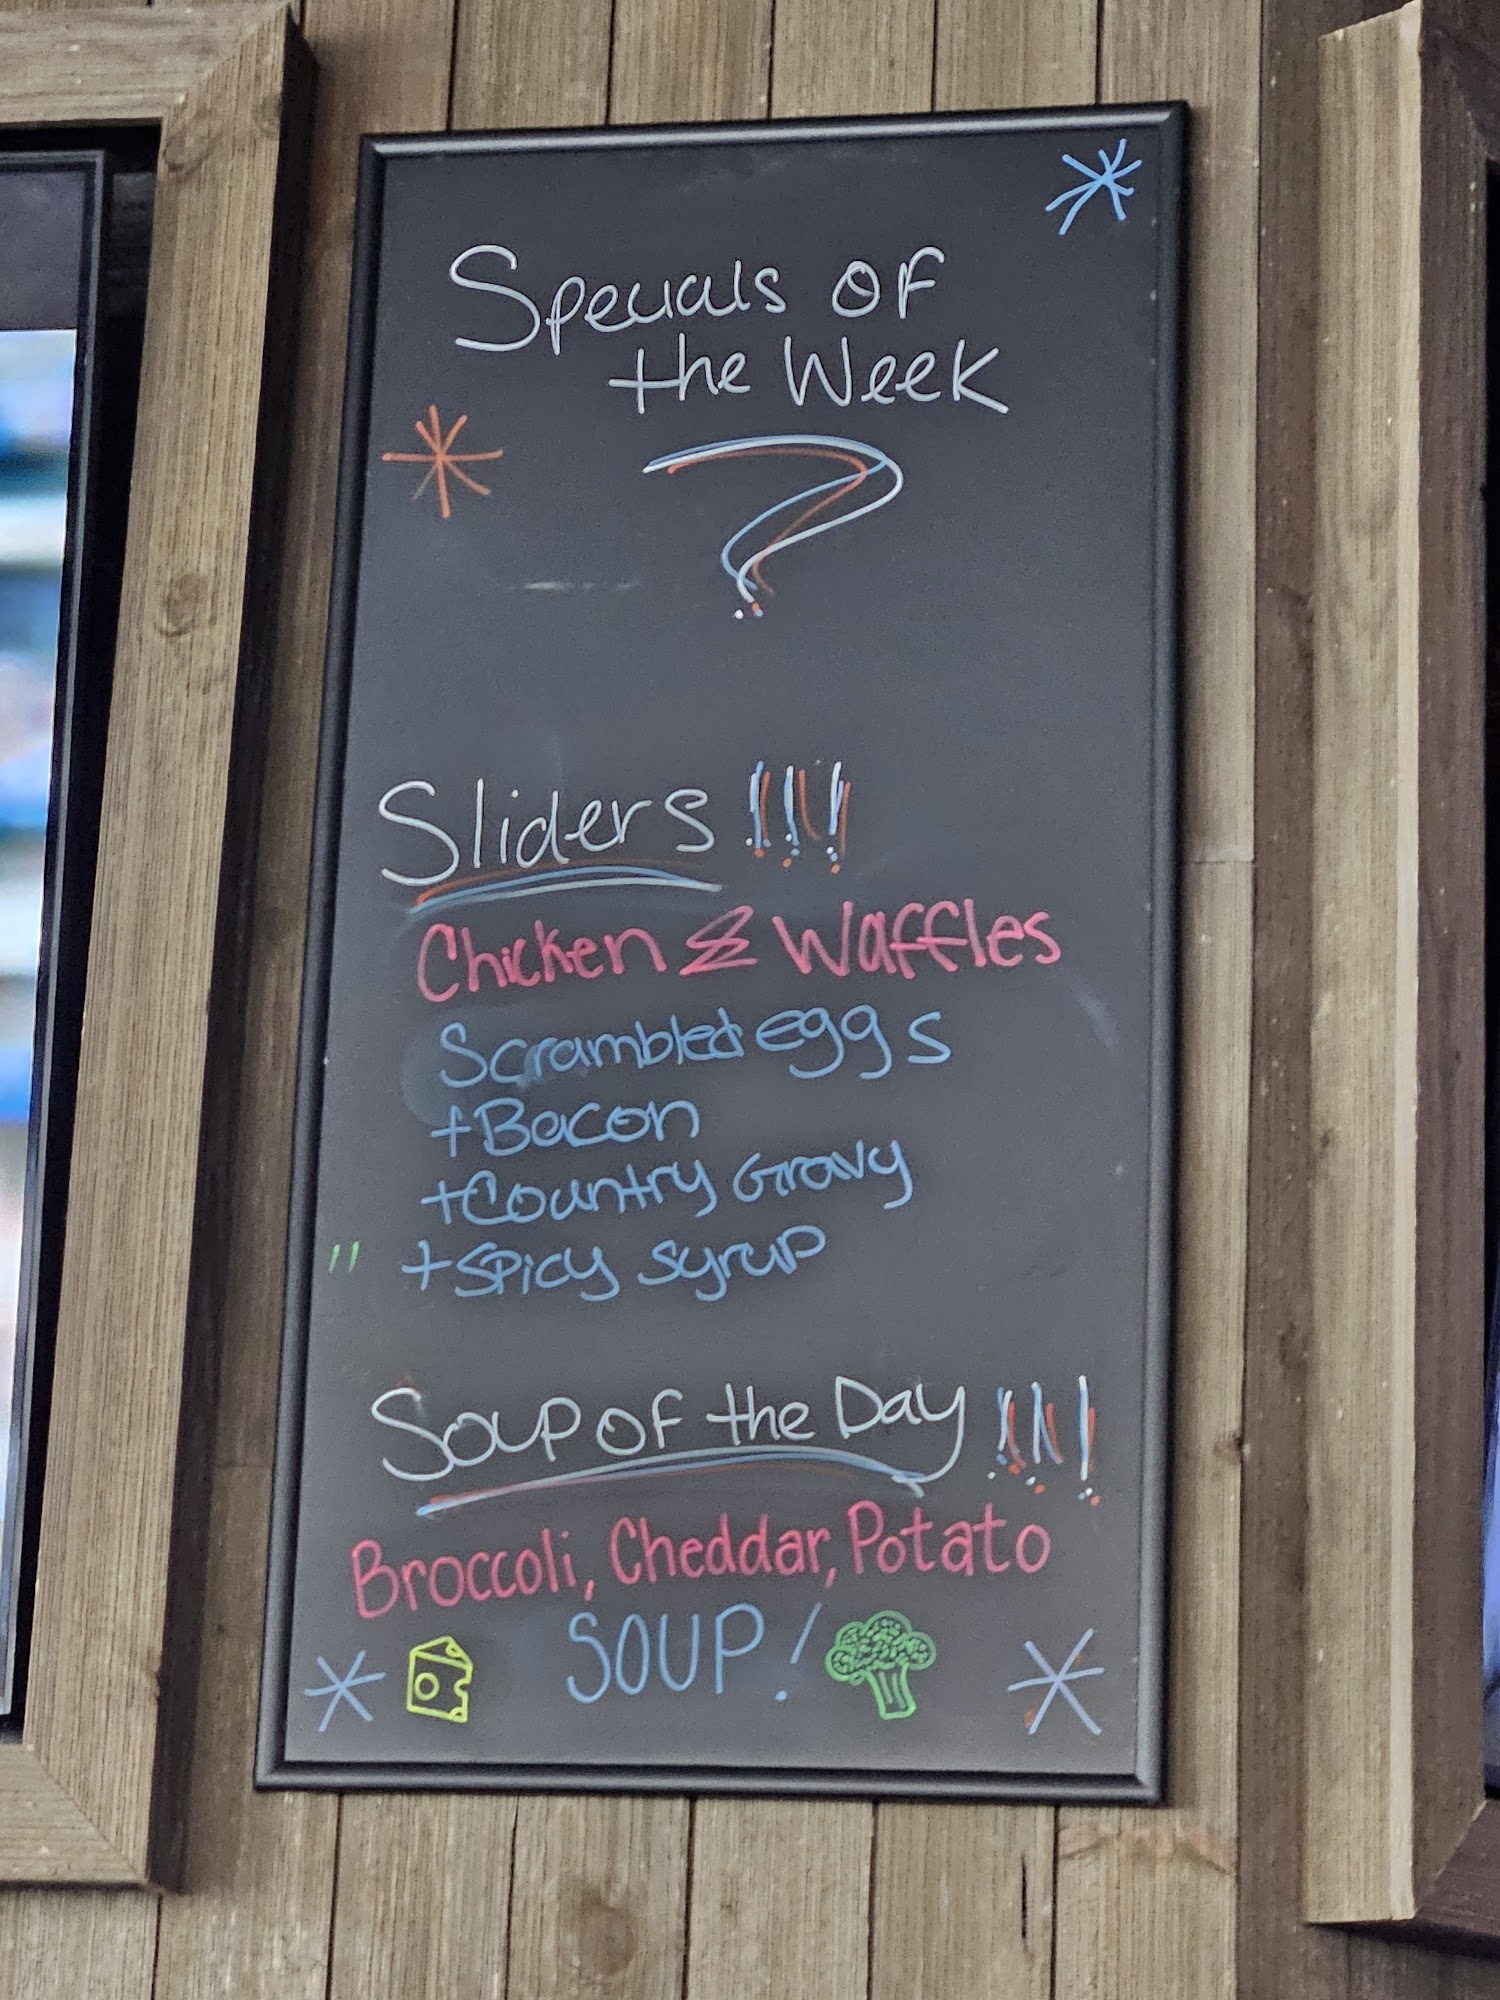 Specials of
the Week
?
Sliders !!!
Chicken & Waffles
Scrambled eggs
+Bacon
+Country Gravy
+Spicy Syrup
Soup of the Day !!!
Broccoli, Cheddar, Potato
SOUP!